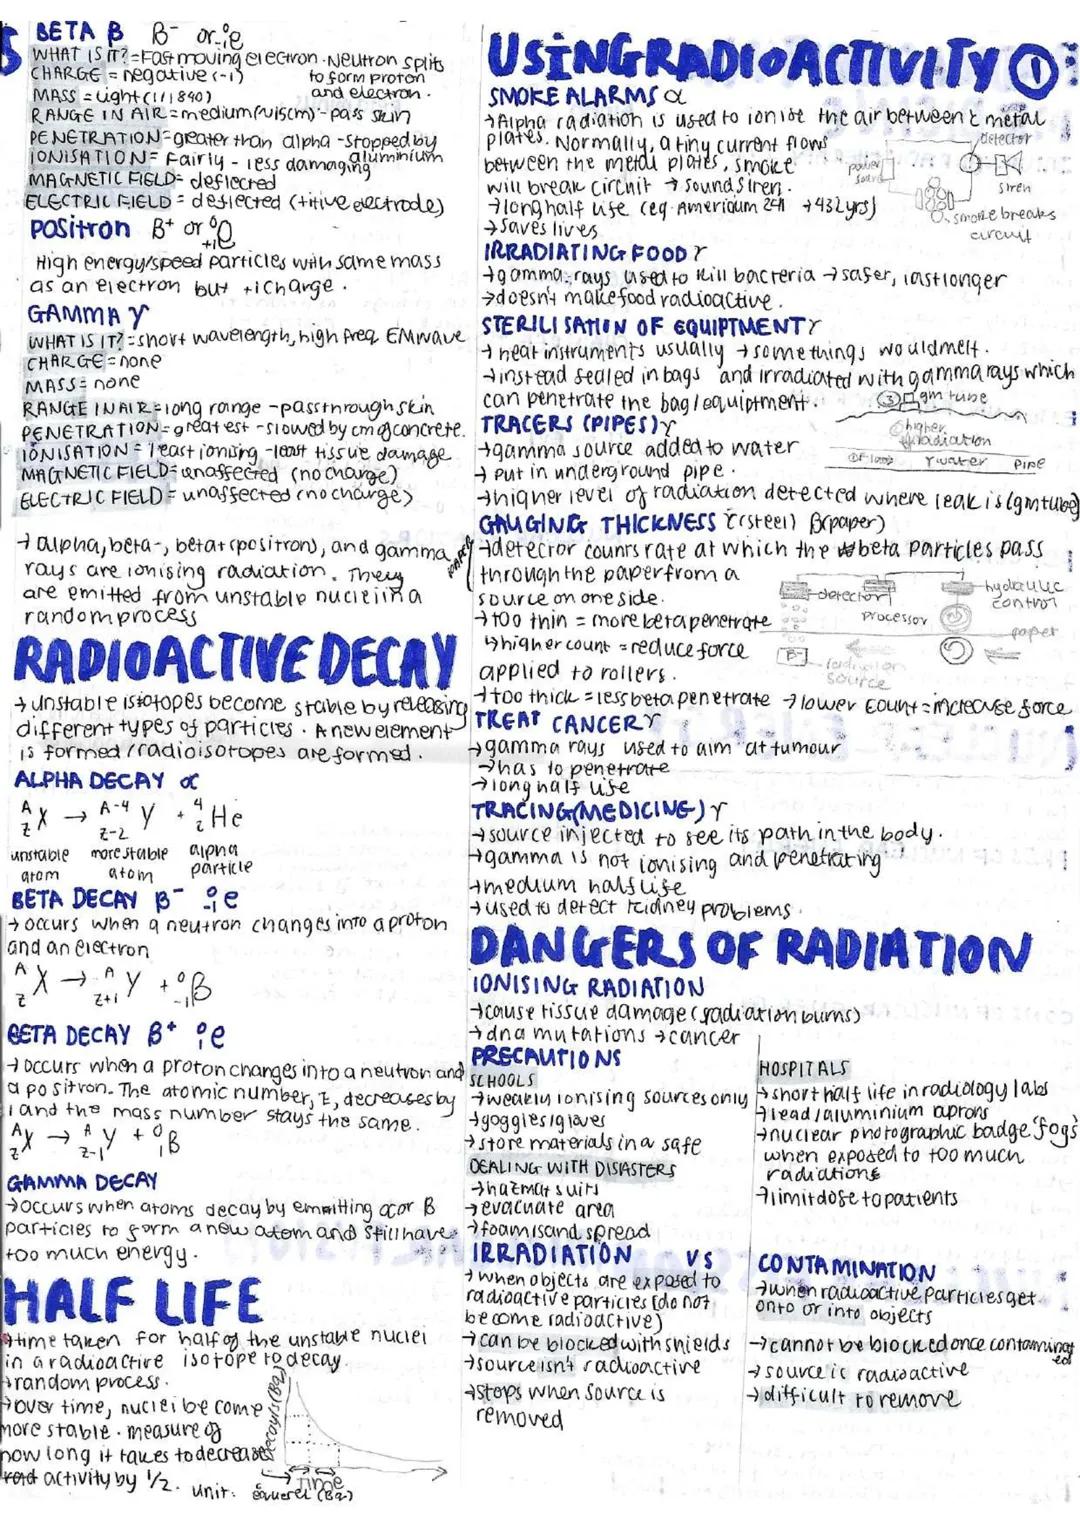 BETA β β⁻ or ⁰₋₁e
WHAT IS IT? = Fast moving electron · Neutron splits
to form proton
and electron.
CHARGE = negative (-1)
MASS = light (1/1840)
RANGE IN AIR = medium (~15cm) - pass skin
PENETRATION = greater than alpha - stopped by
aluminium
IONISATION = Fairly - less damaging
MAGNETIC FIELD = deflected
ELECTRIC FIELD = deflected (+itive electrode)
POSITRON β⁺ or ⁰₊₁e
High energy/speed particles with same mass
as an electron but +1 charge.
GAMMA γ
WHAT IS IT? = short wavelength, high freq EM wave
CHARGE = none
MASS = none
RANGE IN AIR = long range - pass through skin
PENETRATION = greatest - slowed by cm of concrete.
IONISATION = least ionising - least tissue damage
MAGNETIC FIELD = unaffected (no charge)
ELECTRIC FIELD = unaffected (no charge)
→ alpha, beta-, beta+ (positrons), and gamma
rays are ionising radiation. They
are emitted from unstable nuclei in a
random process
RADIOACTIVE DECAY
→ unstable isotopes become stable by releasing
different types of particles. A new element
is formed / radioisotopes are formed.
ALPHA DECAY α
ᴬ_Z X → ᴬ⁻⁴_Z₋₂ Y + ⁴₂He
unstable more stable alpha
atom atom particle
BETA DECAY β⁻ ⁰₋₁e
→ occurs when a neutron changes into a proton
and an electron
ᴬ_Z X → ᴬ_Z+1 Y + ⁰₋₁β
BETA DECAY β⁺ ⁰₁e
→ occurs when a proton changes into a neutron and
a positron. The atomic number, Z, decreases by
1 and the mass number stays the same.
ᴬ_Z X → ᴬ_Z-1 Y + ⁰₁β
GAMMA DECAY
→ occurs when atoms decay by emitting α or β
particles to form a new atom and still have
too much energy.
HALF LIFE
→ time taken for half of the unstable nuclei
in a radioactive isotope to decay.
→ random process.
→ over time, nuclei become
more stable. measure of
how long it takes to decrease
activity by 1/2. unit: (Bq)
Decays (Bq)
Time
USING RADIOACTIVITY ①
SMOKE ALARMS α
→ Alpha radiation is used to ionise the air between 2 metal
plates. Normally, a tiny current flows
between the metal plates, smoke
will break circuit → sound siren.
→ long half life (eg. Americium 241 → 432 yrs)
→ saves lives
detector
power
siren
smoke breaks
circuit
IRRADIATING FOOD γ
→ gamma rays used to kill bacteria → safer, last longer
→ doesn't make food radioactive.
STERILISATION OF EQUIPTMENT γ
→ heat instruments usually → some things would melt.
→ instead sealed in bags and irradiated with gamma rays which
can penetrate the bag/equiptment.
TRACERS (PIPES) γ
→ gamma source added to water
→ put in underground pipe.
→ higher level of radiation detected where leak is (gm tube)
③ gm tube
higher
radiation
γ water pipe
GAUGING THICKNESS γ (steel) β (paper)
→ detector counts rate at which the beta particles pass
through the paper from a
source on one side.
→ too thin = more beta penetrate
↳ higher count = reduce force
applied to rollers.
→ too thick = less beta penetrate → lower count = increase force
detector
processor
hydraulic
control
paper
β-
radiation
source
TREAT CANCER γ
→ gamma rays used to aim at tumour
→ has to penetrate
→ long half life
TRACING (MEDICINE) γ
→ source injected to see its path in the body.
→ gamma is not ionising and penetrating
→ medium half life
→ used to detect kidney problems.
DANGERS OF RADIATION
IONISING RADIATION
→ cause tissue damage (radiation burns)
→ dna mutations → cancer
PRECAUTIONS
SCHOOLS
→ weakly ionising sources only
→ goggles/gloves
→ store materials in a safe
DEALING WITH DISASTERS
→ hazmat suits
→ evacuate area
→ foam sand spread
HOSPITALS
→ short half life in radiology labs
→ lead/aluminium aprons
→ nuclear photographic badge 'fogs'
when exposed to too much
radiation
→ limit dose to patients
IRRADIATION VS
→ when objects are exposed to
radioactive particles (do not
become radioactive)
→ can be blocked with shields
→ source isn't radioactive
→ stops when source is
removed
CONTAMINATION
→ when radioactive particles get
onto or into objects
→ cannot be blocked once contaminated
→ source is radioactive
→ difficult to remove